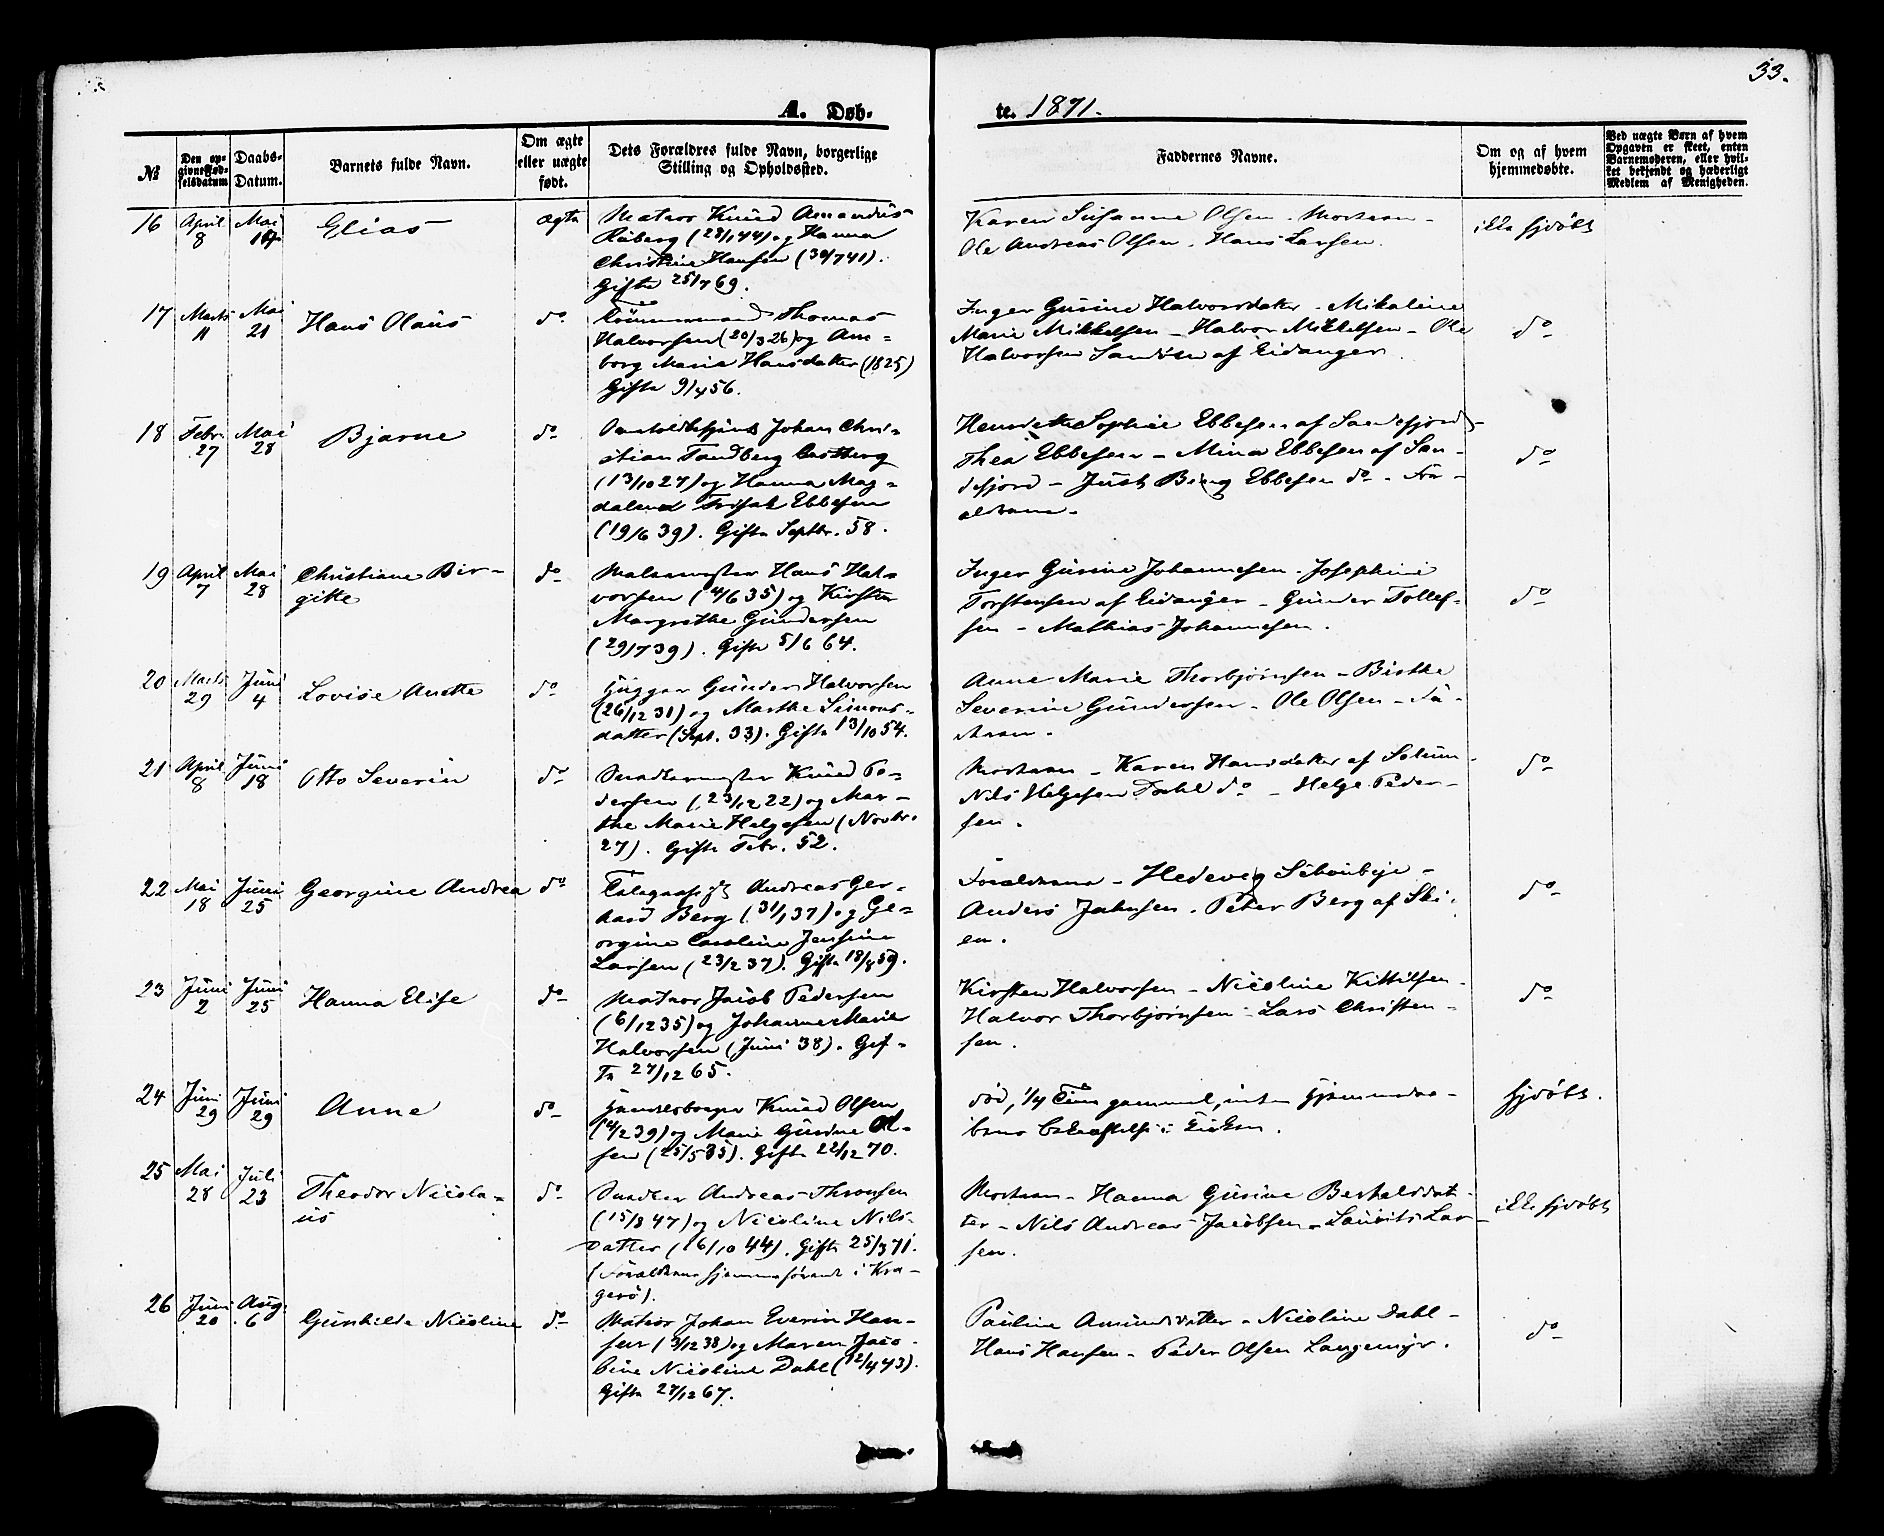 33.
A. Døb-
te. 1871.
№
Den op-
givne Fød-
selsdatum
Daabs-
Datum.
Barnets fulde Navn.
Om ægte
eller uægte
født.
Dets Forældres fulde Navn, borgerlige
Stilling og Opholdssted.
Faddernes Navne.
Om og af hvem
hjemmedøbte.
Ved uægte Børn af hvem
Opgaven er skeet, enten
Barnemoderen, eller hvil-
ket bekjendt og hæderligt
Medlem af Menigheden.
16 April 8 Mai Elias ægte Matros Knud Amandus
Raberg (28/1 44) og Hanna
Christine Hansen (30/7 41).
Gifte 25/7 69.
Karen Susanne Olsen - Moderen -
Ole Andreas Olsen. Hans Larsen.
ikke hjdøbt
17 Marts 11 Mai 21 Hans Olaus do Tømmermand Thomas
Halvorsen (20/3 26) og Am-
borg Maria Hansdatter (1825)
Gifte 9/4 56.
Inger Gusine Halvorsdatter - Mikaline
Marie Mikkelsen - Halvor Mikkelsen - Ole
Halvorsen Sandøen af Eidanger.
do
18 Febr. 27 Mai 28 Bjarne do Johan Chri-
stian Tandberg Castberg
(13/10 27) og Hanna Mag-
dalena Ebbesen
(19/6 39). Gifte Septbr. 58.
Henriette Sophie Ebbesen af Sandefjord -
Thea Ebbesen - Mina Ebbesen af San-
defjord - Just Bing Ebbesen do - For-
ældrene -
do
19 April 7 Mai 28 Christiane Bir-
gitte
do Malermester Hans Hal-
vorsen (4/6 35) og Kirsten
Margrethe Gundersen
(29/7 39). Gifte 5/6 64.
Inger Gusine Johannesen - Josephine
Torstensen af Eidanger - Gunder Tollef-
sen - Mathias Johannesen.
do
20 Marts 29 Juni 4 Lovise Anette do Gunder Halvorsen
(26/12 31) og Marthe Simons-
datter (Sept. 33). Gifte 13/10 54.
Anne Marie Thorbjørnsen - Birthe
Severine Gundersen - Ole Olsen - Fa-
deren -
do
21 April 8 Juni 18 Otto Severin do Snedkermester Knud Pe-
dersen (23/12 22) og Mar-
the Marie Helgesen (Novbr.
27). Gifte Febr. 52.
Moderen - Karen Hansdatter af Solum -
Nils Helgesen Dahl do - Helge Peder-
sen.
do
22 Mai 18 Juni 25 Georgine Andrea do Andreas Ger-
hard Berg (31/1 37) og Ge-
orgine Caroline Jensine
Larsen (23/2 37). Gifte 18/8 59.
Forældrene - Hedevig Schønbeje -
Anders Jahnsen. Peter Berg af Ski-
en.
do
23 Juni 2 Juni 25 Hanna Elise do Matros Jacob Pedersen
(6/12 35) og Johanne Marie
Halvorsen (Juni 38). Gif-
te 27/12 65.
Kirsten Halvorsen - Nicoline Kittilsen -
Halvor Thorbjørnsen - Lars Christen-
sen.
do
24 Juni 29 Juni 29 Anne do Knud Olsen
(4/2 39) og Marie Gurine Ol-
sen (25/5 35). Gifte 22/12 70.
død, 1/4 Time gammel, uden Hjemmedaa-
bens Bekræftelse i Kirken.
hjdøbt.
25 Mai 28 Juli 23 Theodor Nicola-
us
do Snedker Andreas Thronsen
(15/8 47) og Nicoline Nils-
datter (16/10 44). Gifte 25/3 71.
(Forældrene hjemmehørende i Kra-
gerø).
Moderen - Hanna Gusine Berthelsdat-
ter - Nils Andreas Jacobsen - Laurits Lar-
sen.
ikke hjdøbt
26 Juni 20 Aug. 6 Gunhilde Nicoline do Matros Johan Everin Han-
sen (3/12 38) og Maren Jaco-
bine Nicoline Dahl (12/4 43).
Gifte 27/12 67.
Pauline Amundsdatter - Nicoline Dahl -
Hans Hansen - Peder Olsen Langemyr.
do